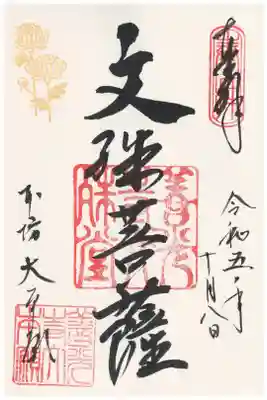 奉拝
文殊菩薩
令和五年
十月八日
本坊 大本願